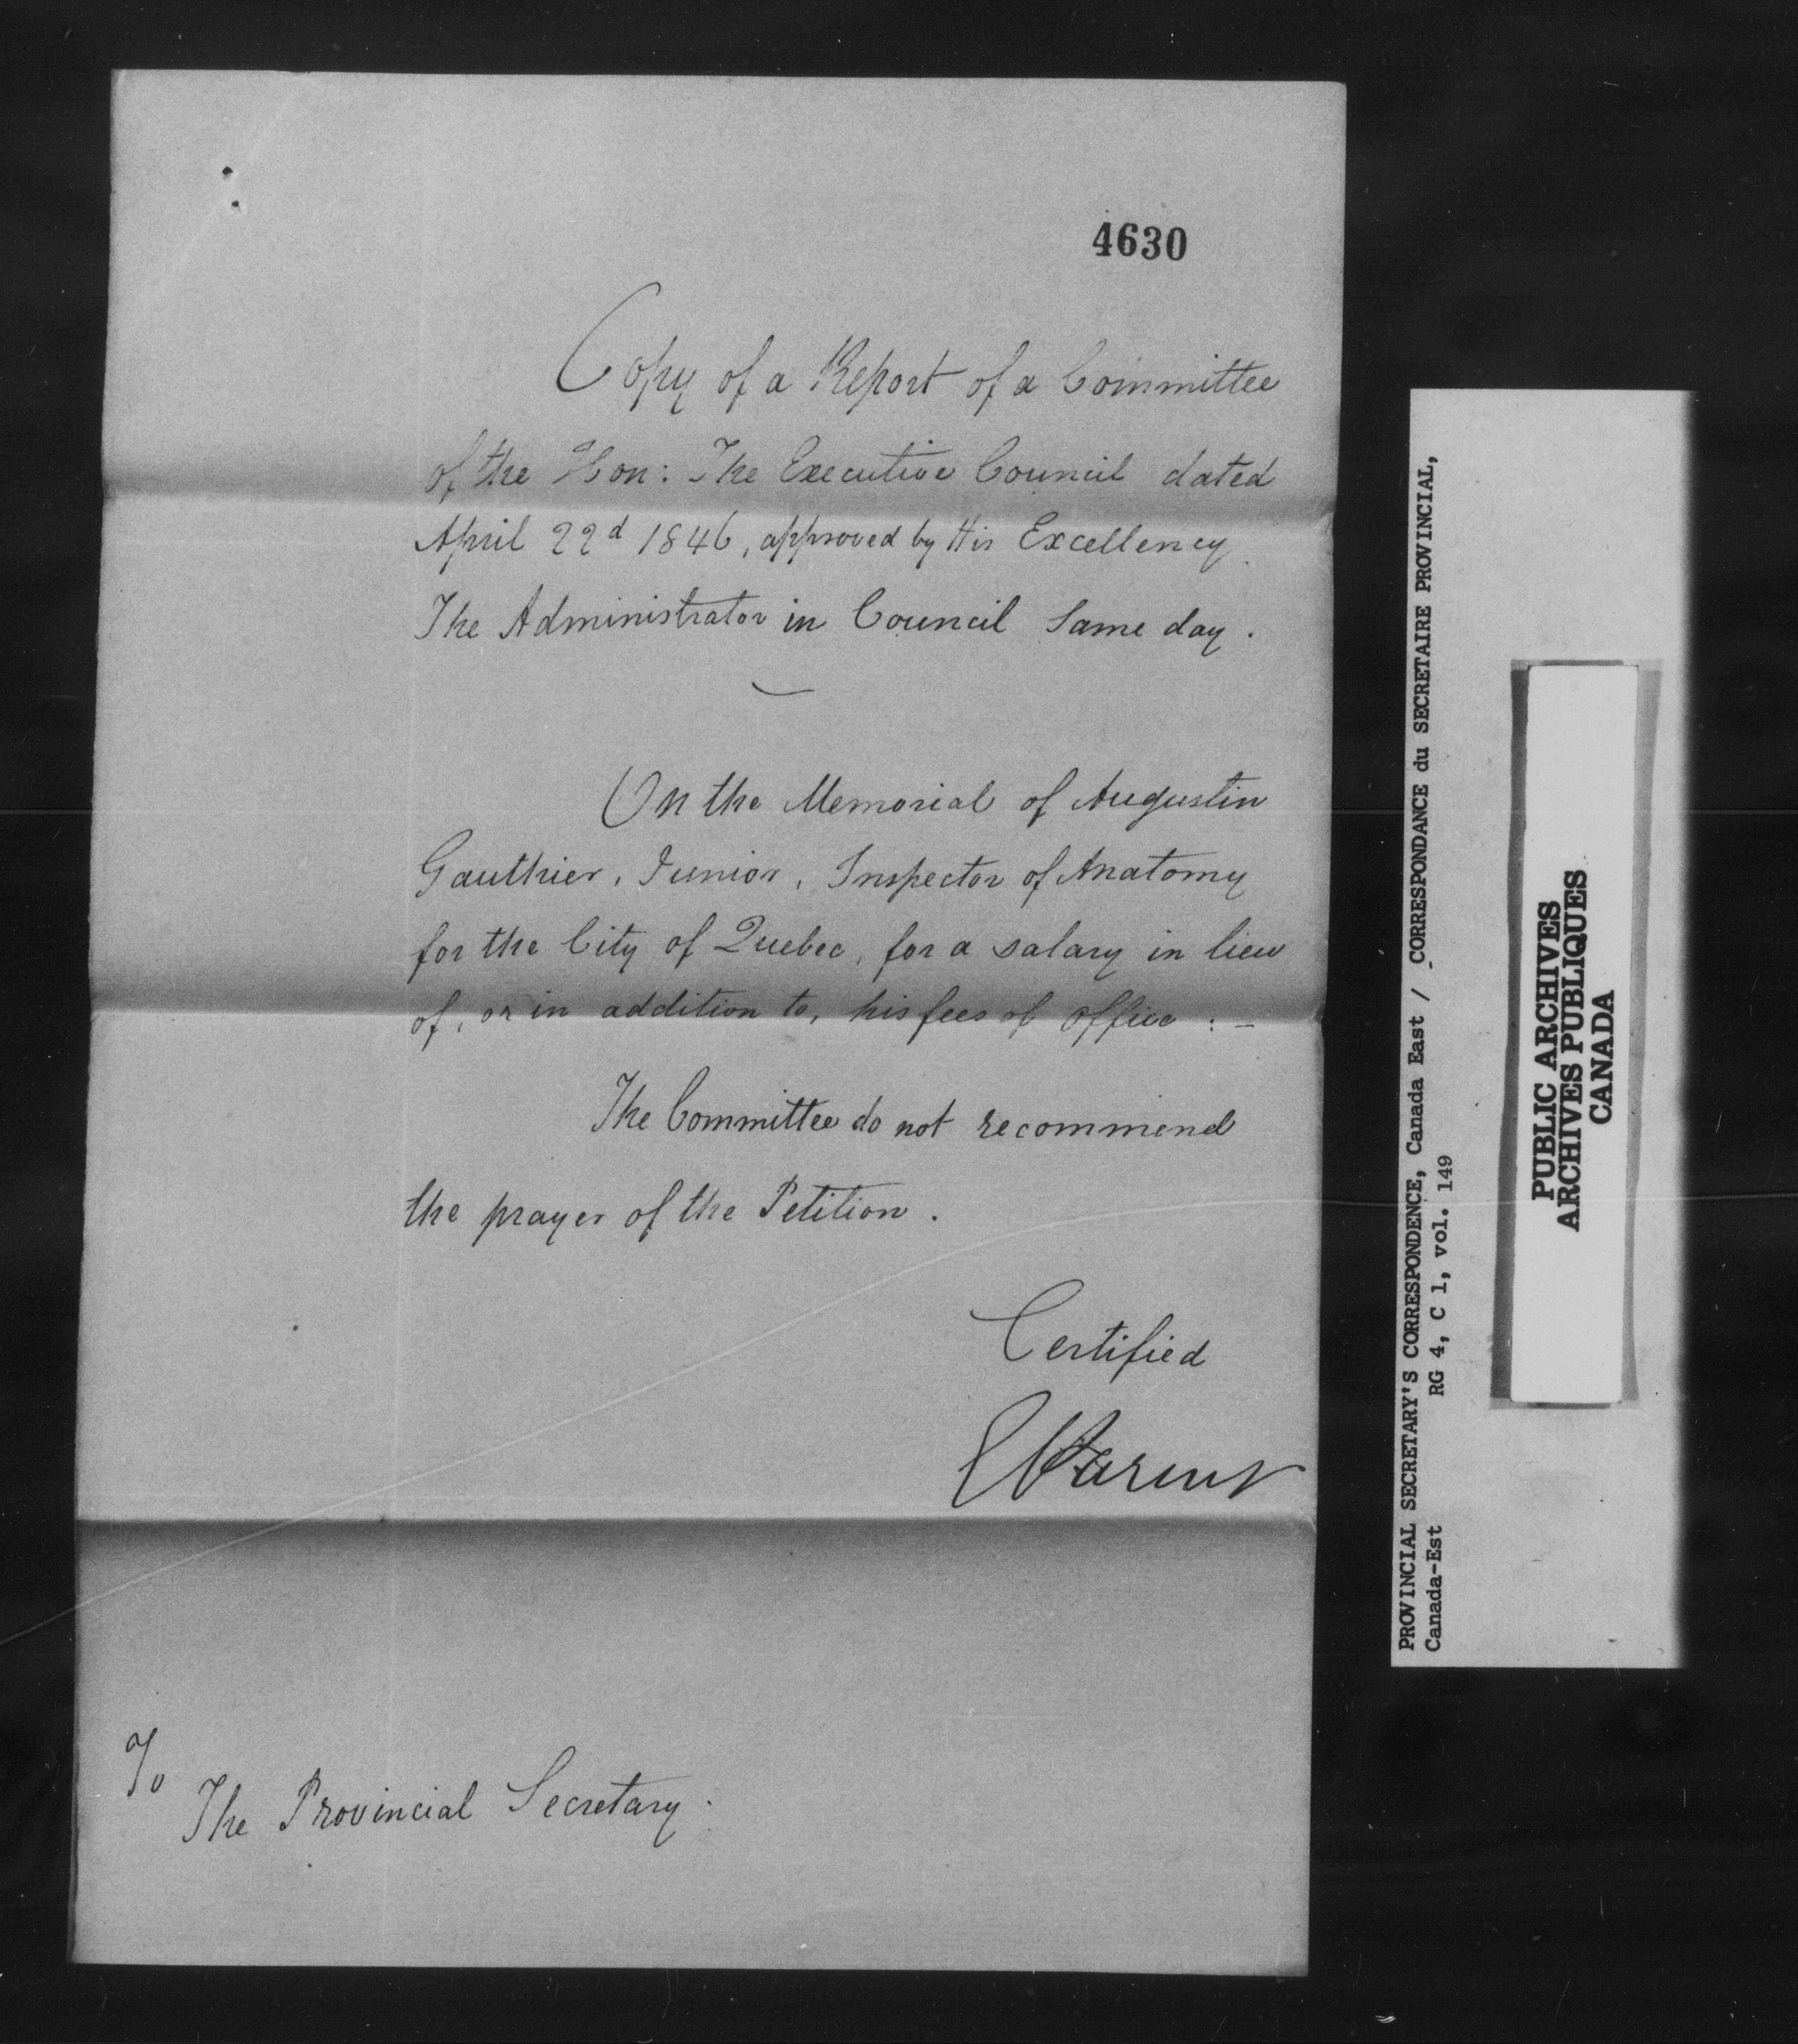 4630
Copy of a Report of a Committee
of the Hon: The Executive Council dated
April 22d 1846, approved by His Excellency
The Administrator in Council Same day.
On the Memorial of Augustin
Gauthier, Junior, Inspector of Anatomy
for the City of Quebec, for a salary in lieu
of, or in addition to, his fees of office : -
The Committee do not recommend
the prayer of the Petition.
Certified
E Parent
To
The Provincial Secretary.
PROVINCIAL SECRETARY'S CORRESPONDENCE, Canada East / CORRESPONDANCE du SECRETAIRE PROVINCIAL,
Canada-Est RG 4, C 1, vol. 149
PUBLIC ARCHIVES
ARCHIVES PUBLIQUES
CANADA